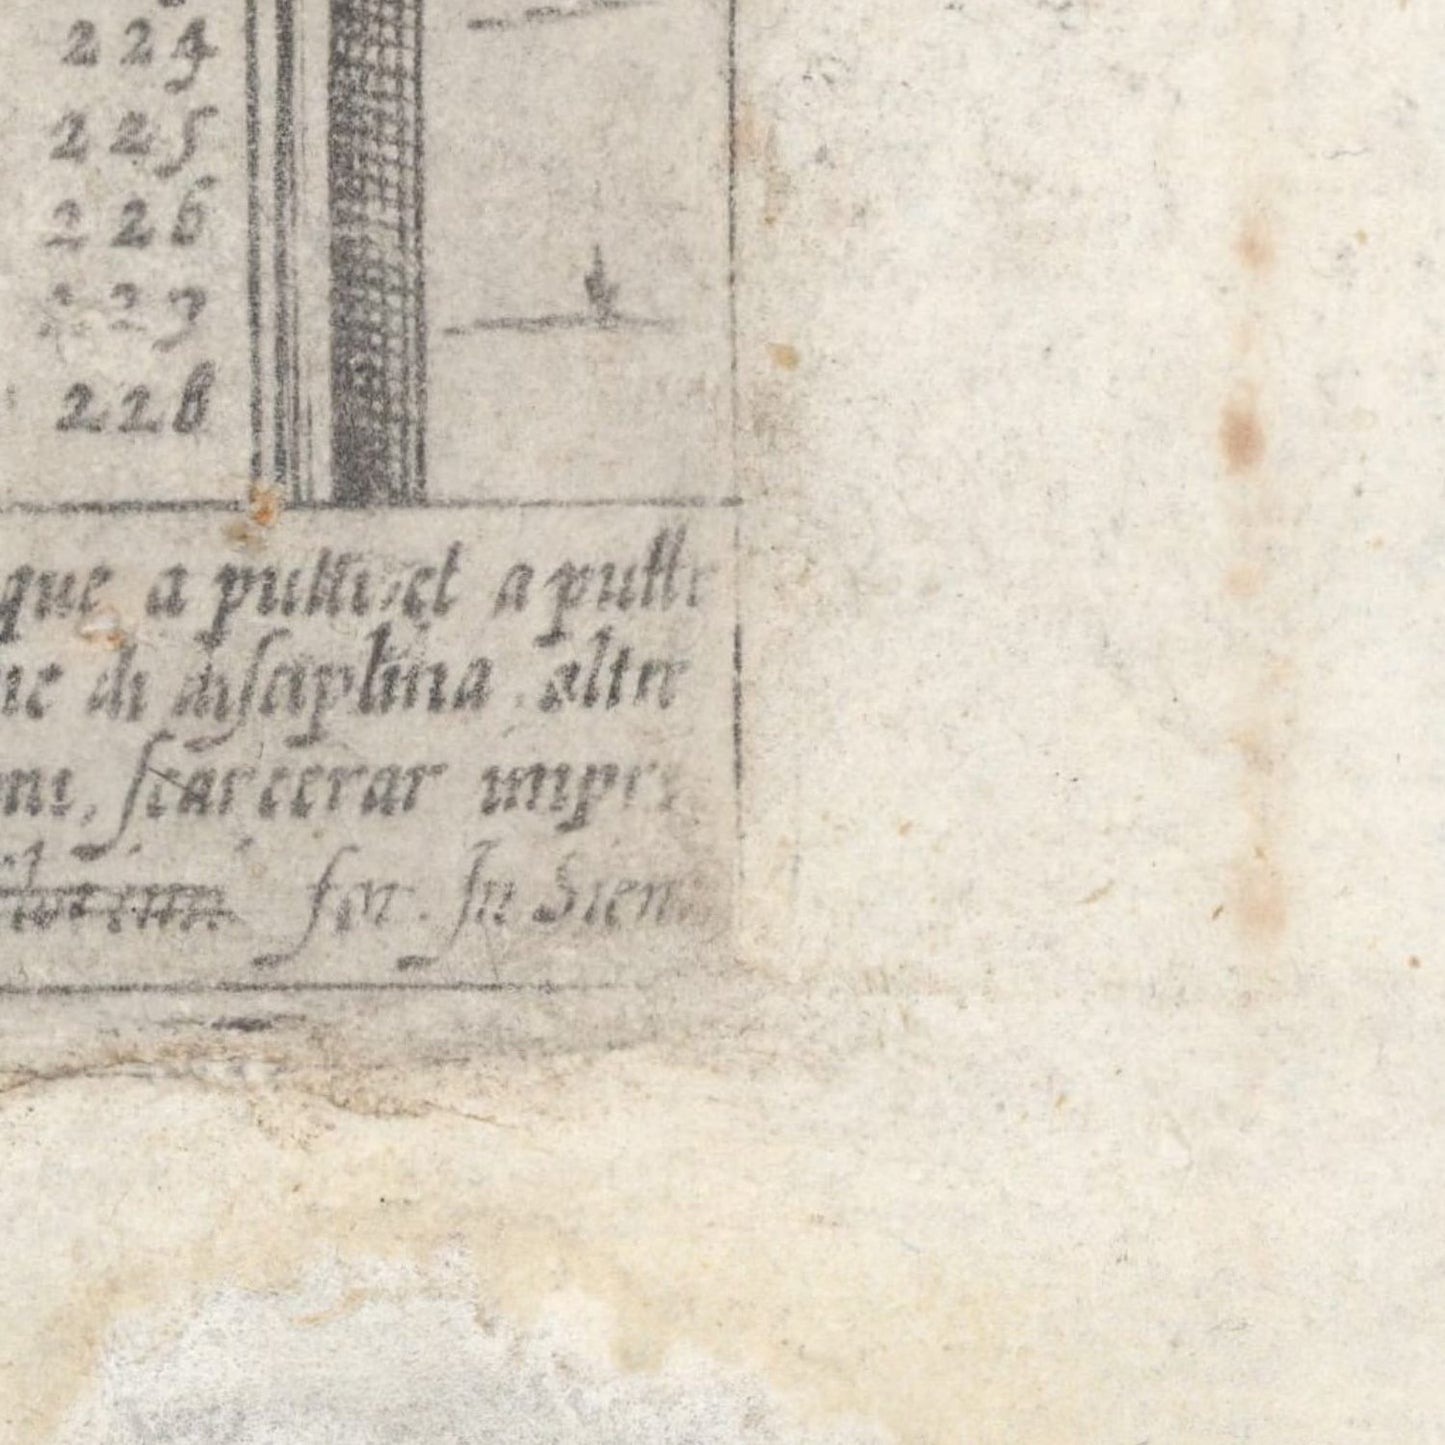 224
225
226
227
228
que a putti, et a putte
ne di disciplina altre
oni, scarcerar impre
for. In Siena